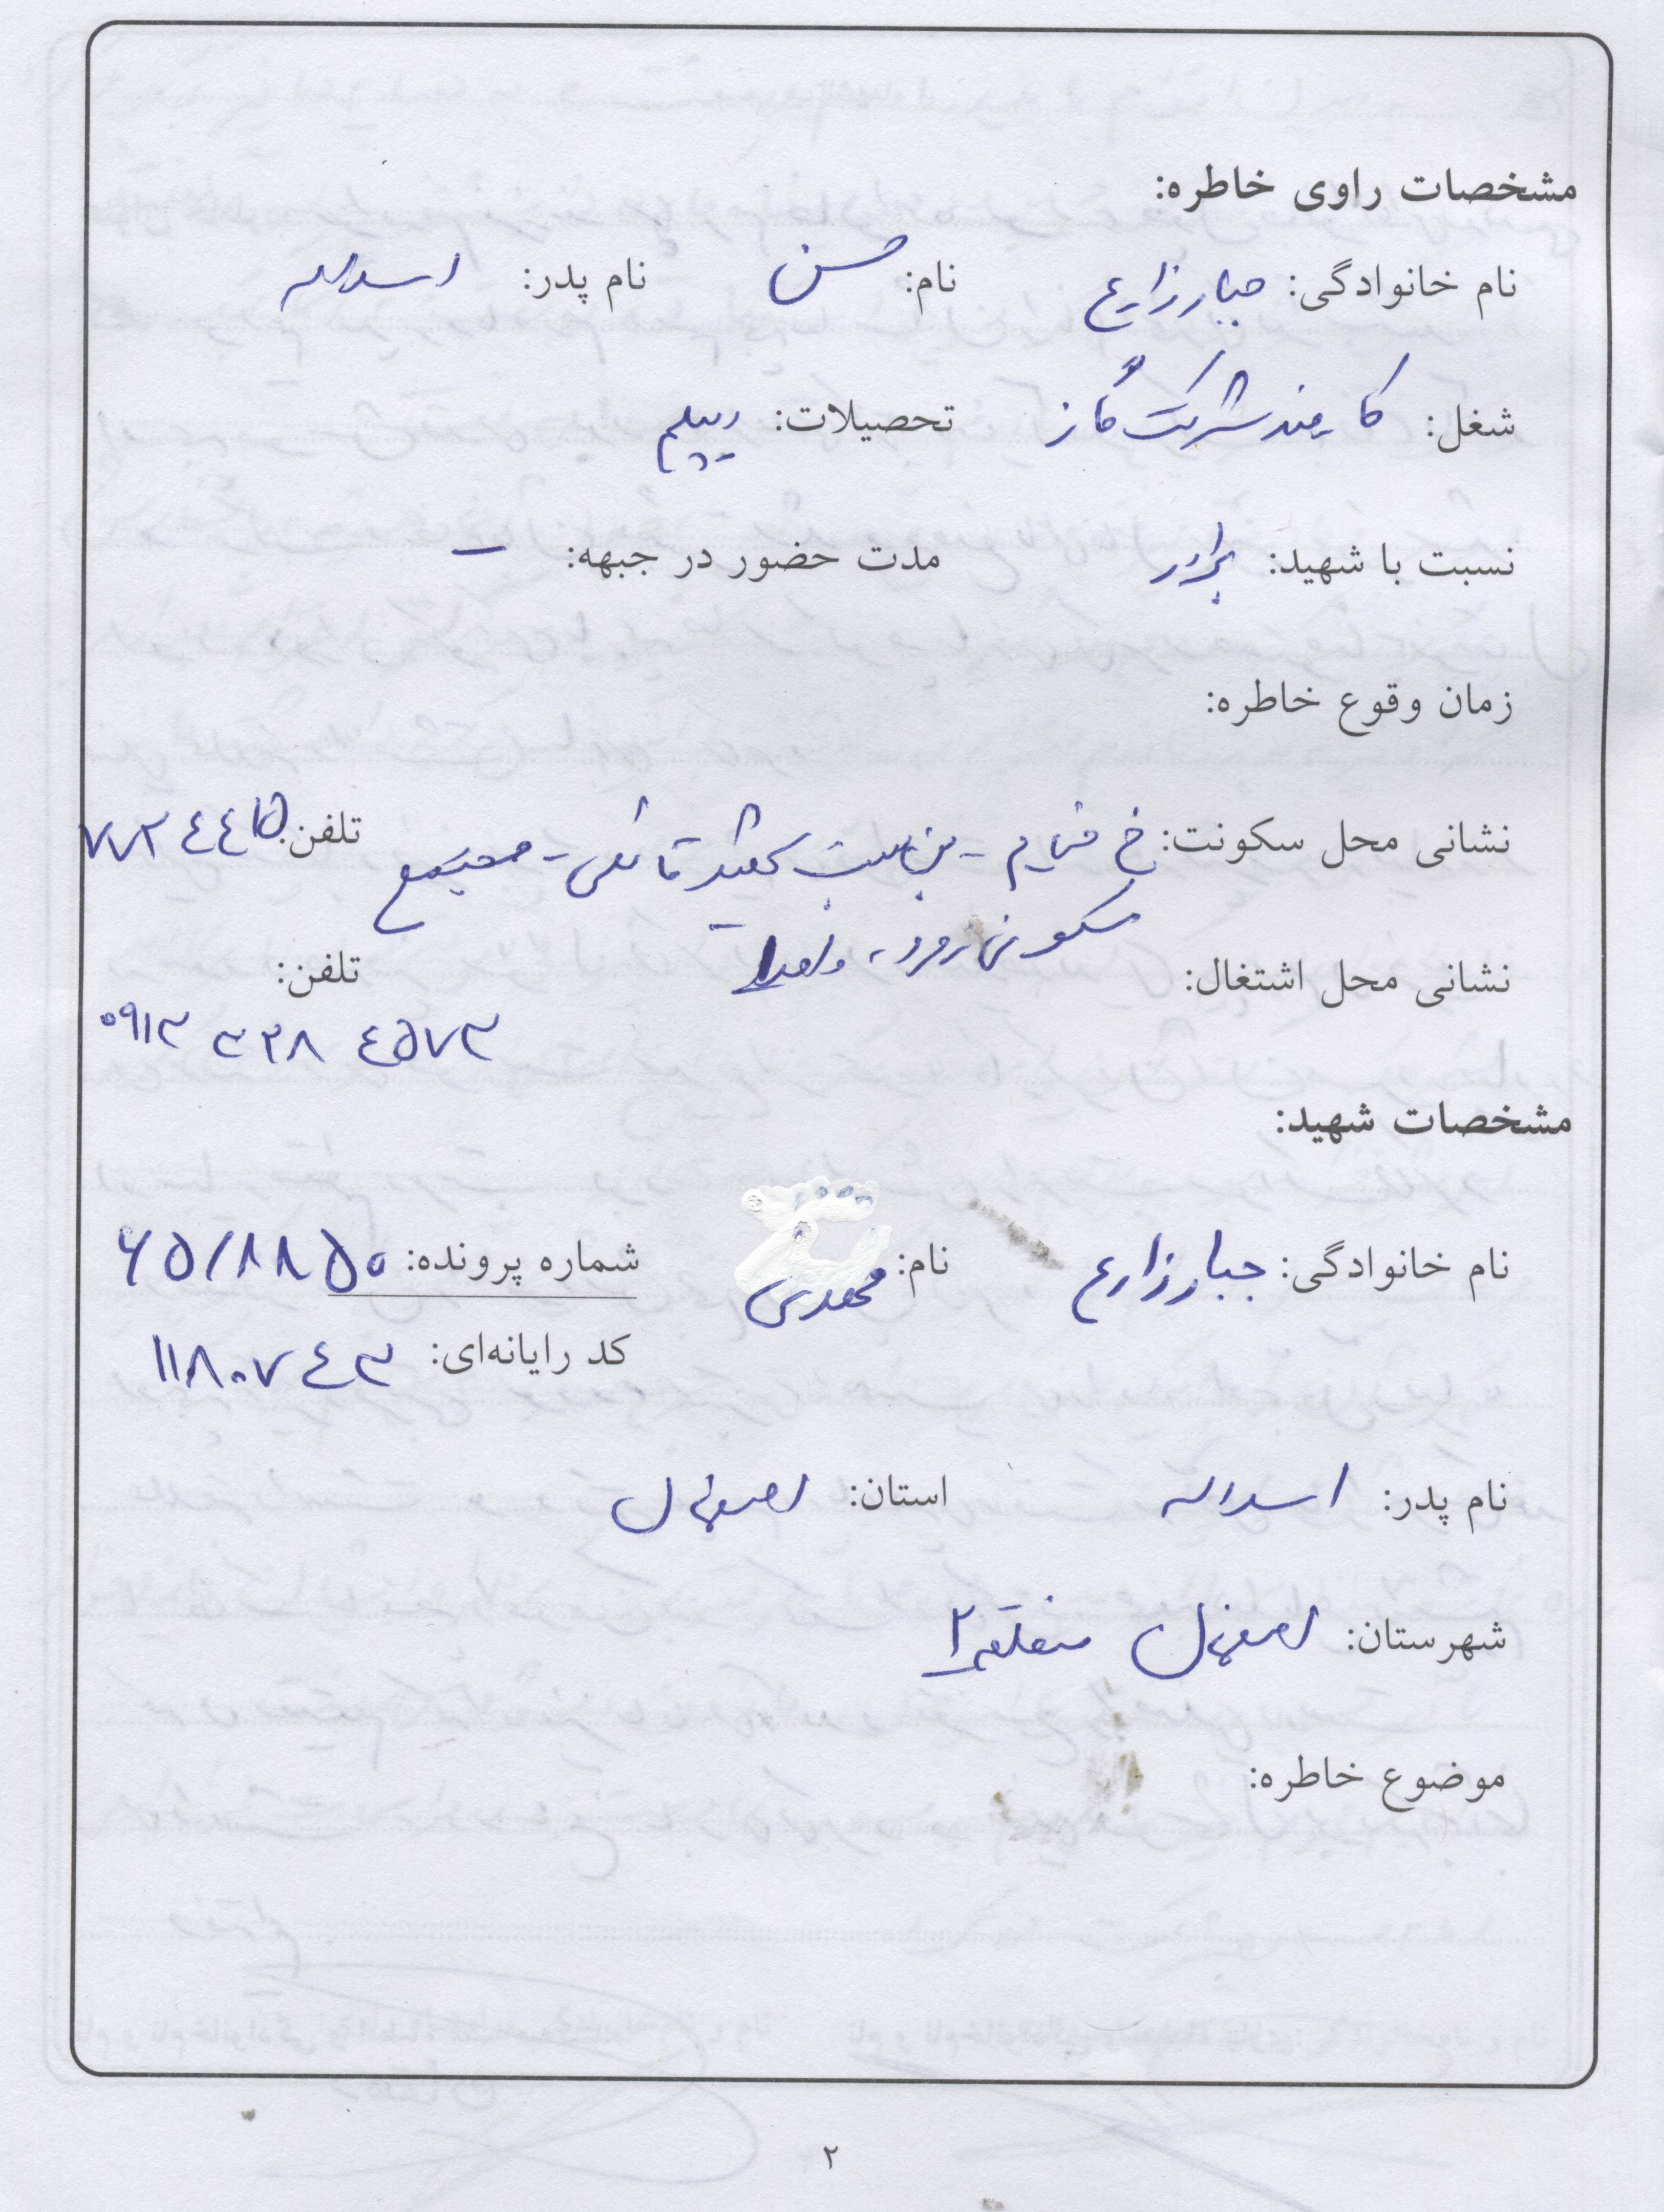 مشخصات راوی خاطره:
نام خانوادگی: جبارزارع نام: حسن نام پدر: اسداله
شغل: کارمند شرکت گاز تحصیلات: دیپلم
نسبت با شهید: برادر مدت حضور در جبهه: –
زمان وقوع خاطره:
نشانی محل سکونت: خ خیام - بن بست شهید - مجتمع تلفن:
سکونی واحد ۱
نشانی محل اشتغال: تلفن:
۰۹۱۳ ۳۲۸ ۴۵۷۳
مشخصات شهید:
نام خانوادگی: جبارزارع نام: شماره پرونده: ۶۵/۸۸۵۰
کد رایانه‌ای: ۱۱۸۰۷۴۳
نام پدر: اسداله استان: اصفهان
شهرستان: اصفهان منطقه ۲
موضوع خاطره:
۲